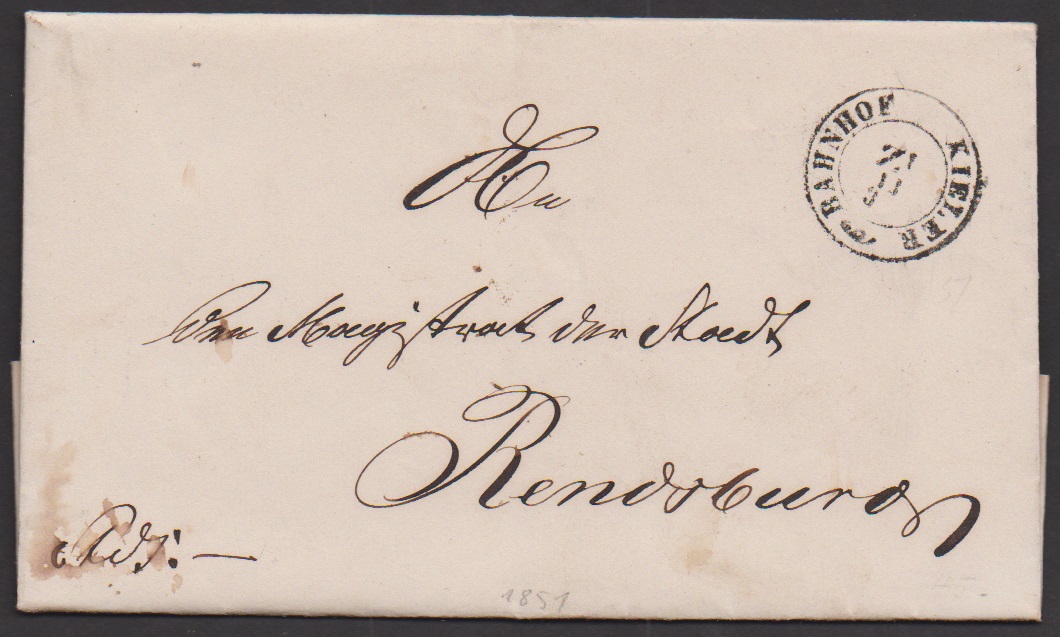 KIELER BAHNHOF
An
den Magistrat der Stadt
Rendsburg
1851